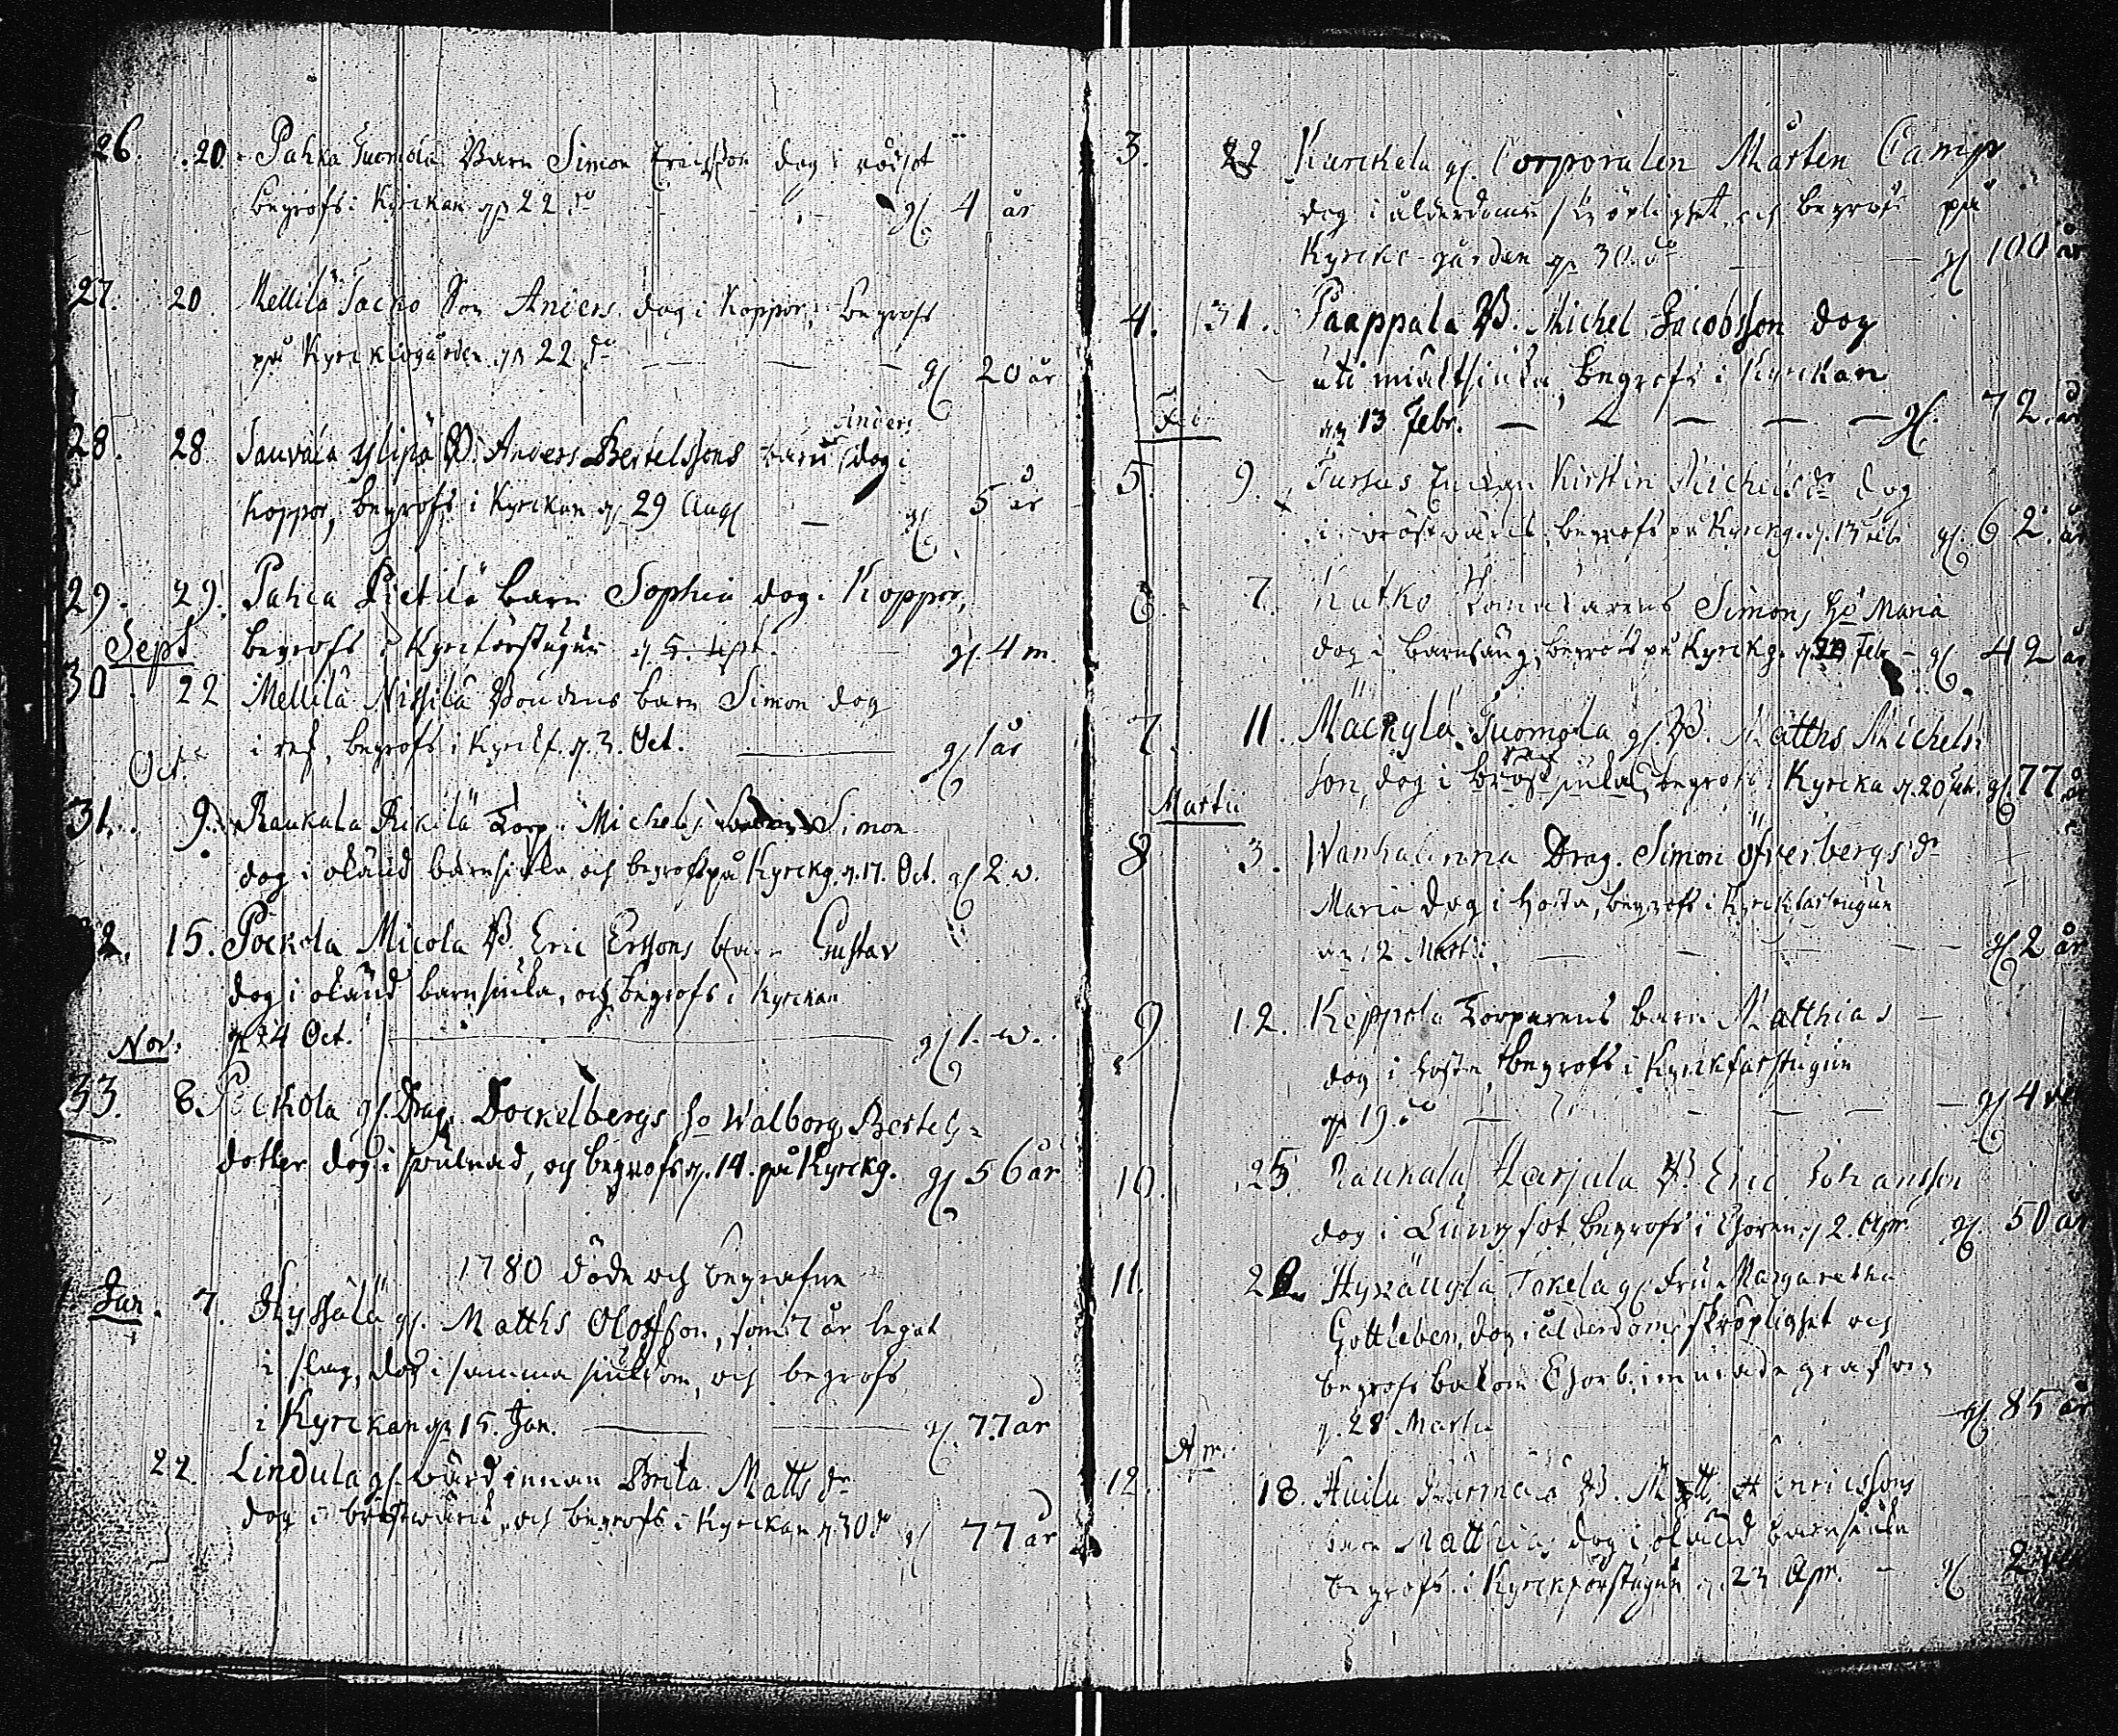 26. 20. Pahka Tuomola Barn Simon Ericsson dog i rödsot
begrofs i Kyrckan d. 22 do gl. 4 år
27. 20 Mellilä Jacko Son Anders dog i Koppor, begrofs
på Kyrckiogården d. 22 do gl. 20 år
Anders
28. 28 Sauvala Ylipää B. Anders Bertelssons barn dog i
Koppor, begrofs i Kyrckan d. 29 Aug gl. 5 år
29. 29. Pahca Pietilä barn Sophia dog i Koppor,
Sept begrofs i Kyrckförstugun d. 5. Sept. gl. 4 m.
30. 22 Mellilä Nissilä Bondens barn Simon dog
i ref, begrofs i Kyrckf. d. 3. Oct. gl. 1 år
Oct.
31. 9. Raukala Rikilä Torp. Michels Simon
dog i okänd barnsiuka och begrofs på Kyrckg. d. 17. Oct. gl. 2 w.
2. 15. Pockola Micola B. Eric Ersons barn Gustav
dog i okänd barnsiuka, och begrofs i Kyrckan
Nov. d. 24 Oct. gl. 1. w.
33. 8. Pockola gl. Drag. Dockelbergs ho Walborg Bertels
dotter dog i , och begrofs d. 14. på Kyrckg. gl. 56 år
1780 döde och begrafne
1 Jan. 7. Hyssälä gl. Matths Olofsson, som 7 år legat
i slag, dog i samma siukdom, och begrofs
i Kyrckan d. 15. Jan. gl. 77 år
2. 22 Lindula gl. wärdinnan Brita Matts dr
dog i bröstwärck, och begrofs i Kyrckan d. 30 do gl. 77 år
3. 22 Kurckela gl. Corporalen Mårten Camp
dog i ålderdoms skröplighet och begrofs på
Kyrcko-gården d. 30. do gl. 100 år
4. 31. Paappala B. Michel Jacobsson dog
uti miältsiuka, begrofs i Kyrckan
Feb. d. 13 Febr. gl. 72. år
5. 9. Enckan Kirstin Michels dr dog
i bröstwärck, begrofs på Kyrckg. d. 13 Feb gl. 62. år
6. 7. Kutko Simons ho Maria
dog i Barnsäng, begrofs på Kyrckg. d. 20 Feb gl. 42 år
7. 11. Mäckylä Tuomola gl. B. Matths Michels
son, dog i bröst siuka, begrofs i Kyrcka d. 20 Feb. gl. 77 år
Martii
8 3. Wanhalinna Drag. Simon Öfverbergs dr
Maria dog i hosta, begrofs i Kyrckfarstugun
d. 12 Martii. gl. 2 år
9. 12. Keppola Torparens barn Matthias
dog i hosta, begrofs i Kyrckfarstugun
d. 19. do gl. 4
10. 25 Raukala Harjula B. Eric Johansson
dog i Lungsot, begrofs i Choren d. 2. Apr. gl. 50 år
11. 22. Hyväneylä Tokela gl. Fru Margaretha
Gottleben, dog i ålderdoms skröplighet och
begrofs bakom Chor grafven
d. 28 Martii gl. 85 år
Apr.
12. 18. Huilu B. Matt. Henricssons
barn Matthias dog i okänd barnsiuka
begrofs i Kyrckförstugun d. 23 Apr. gl. 2